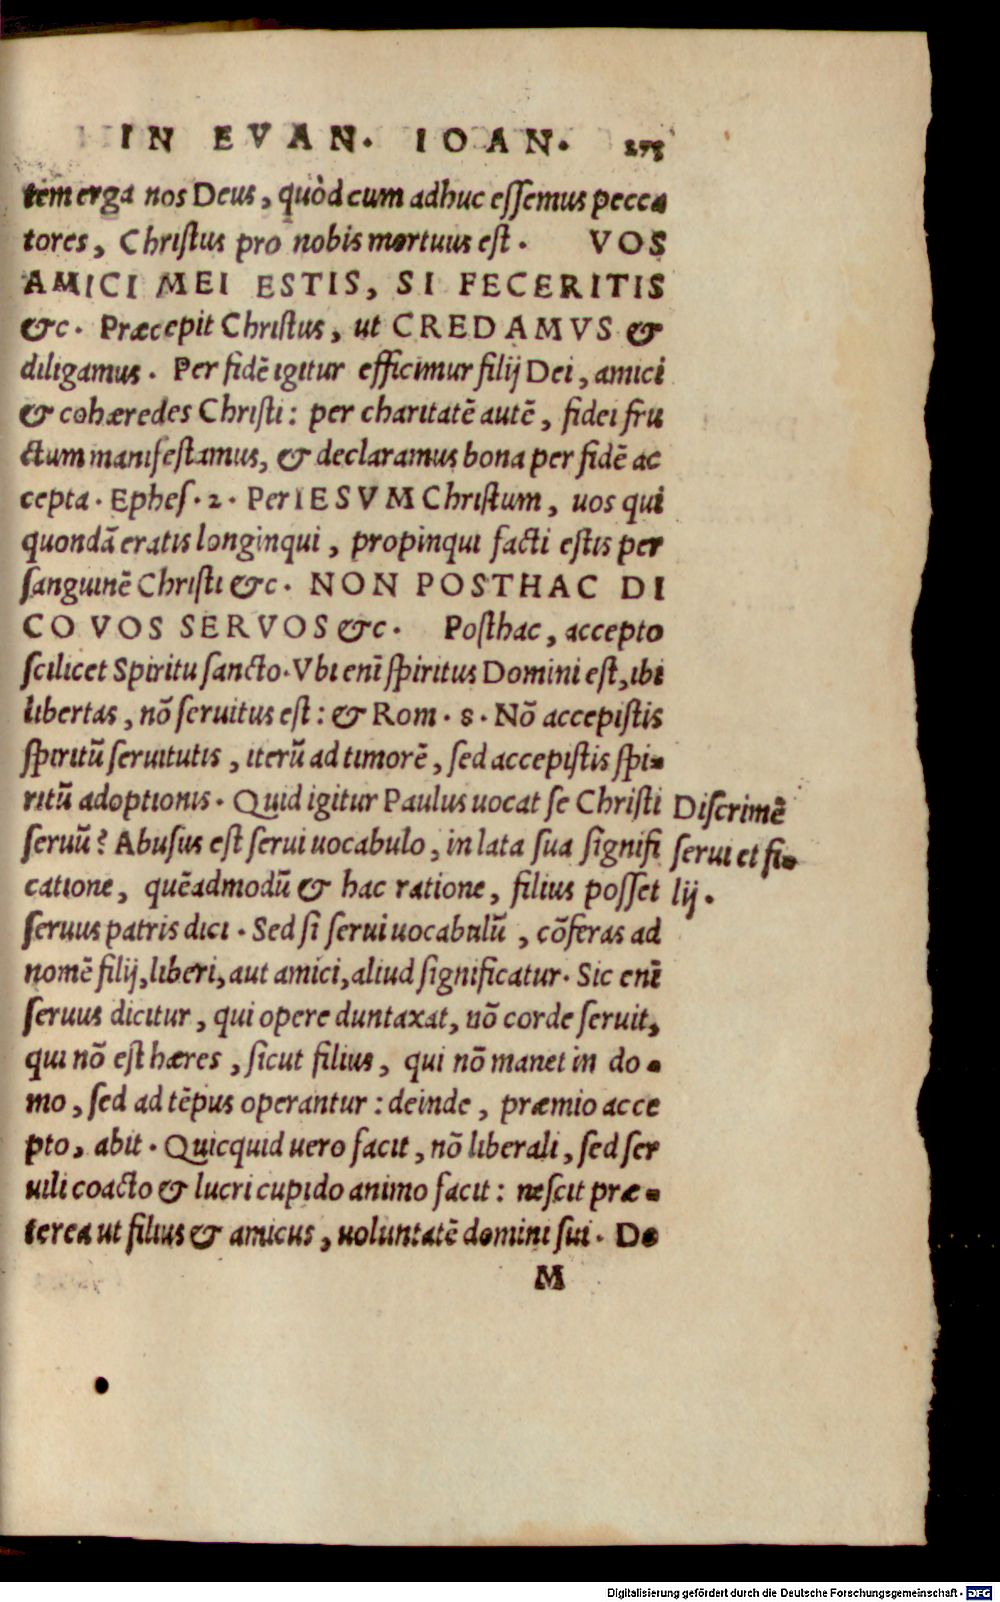 IN EVAN. IOAN. 275
tem erga nos Deus, quòd cum adhuc essemus pecca
tores, Christus pro nobis mortuus est. VOS
AMICI MEI ESTIS, SI FECERITIS
&c. Præcepit Christus, ut CREDAMVS &
diligamus. Per fidē igitur efficimur filij Dei, amici
& cohæredes Christi: per charitatē autē, fidei fru
ctum manifestamus, & declaramus bona per fidē ac
cepta. Ephes. 2. Per IESVM Christum, uos qui
quondā eratis longinqui, propinqui facti estis per
sanguinē Christi &c. NON POSTHAC DI
CO VOS SERVOS &c. Posthac, accepto
scilicet Spiritu sancto. Vbi enī spiritus Domini est, ibi
libertas, nō seruitus est: & Rom. 8. Nō accepistis
spiritū seruitutis, iterū ad timorē, sed accepistis spi-
ritū adoptionis. Quid igitur Paulus uocat se Christi
seruū? Abusus est serui uocabulo, in lata sua signifi
catione, quēadmodū & hac ratione, filius posset
seruus patris dici. Sed si serui uocabulū, cōferas ad
nomē filij, liberi, aut amici, aliud significatur. Sic enī
seruus dicitur, qui opere duntaxat, nō corde seruit,
qui nō est hæres, sicut filius, qui nō manet in do-
mo, sed ad tēpus operantur: deinde, præmio acce
pto, abit. Quicquid uero facit, nō liberali, sed ser
uili coacto & lucri cupido animo facit: nescit præ-
terea ut filius & amicus, uoluntatē domini sui. De
M
Discrimē
serui et fi-
lij.
Digitalisierung gefördert durch die Deutsche Forschungsgemeinschaft - DFG